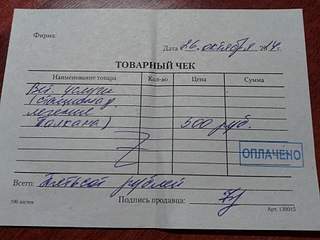 Фирма:
Дата 26. октября 2014.
ТОВАРНЫЙ ЧЕК
Наименование товара Кол-во Цена Сумма
Вет. услуги
(стационар,
лечение
Полкана) 500 руб.
ОПЛАЧЕНО
Всего: Пятьсот рублей
Подпись продавца:
100 листов Арт. 130015